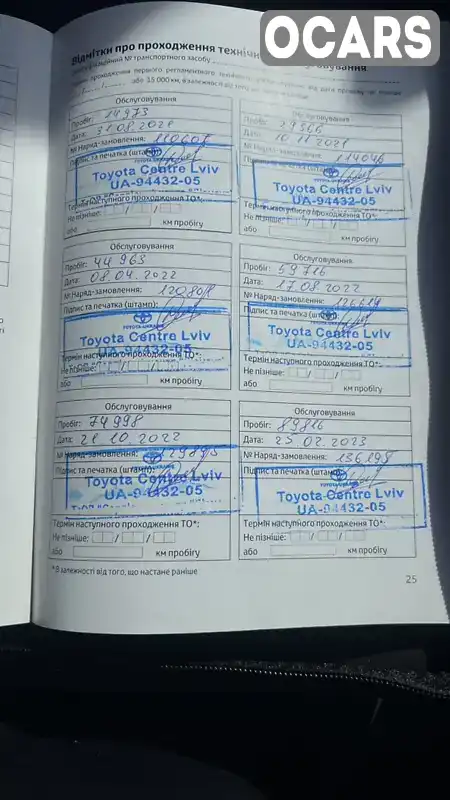 OCARS
Відмітки про проходження технічного обслуговування
Ідентифікаційний № транспортного засобу
або 15 000 км, в залежності від того,
Обслуговування
Пробіг: 14973
Дата: 31.08.2021
№ Наряд-замовлення:
Підпис та печатка (штамп):
Toyota Centre Lviv
UA-94432-05
Термін наступного проходження ТО*:
Не пізніше: / /
або км пробігу
Обслуговування
Пробіг: 29566
Дата: 10.11.2021
№ Наряд-замовлення: 114046
Toyota Centre Lviv
UA-94432-05
Термін наступного проходження ТО*:
Не пізніше: / /
або км пробігу
Обслуговування
Пробіг: 44 963
Дата: 08.04.2022
№ Наряд-замовлення: 120808
Підпис та печатка (штамп):
Toyota Centre Lviv
UA-94432-05
Термін наступного проходження ТО*:
Не пізніше: / /
або км пробігу
Обслуговування
Пробіг: 59716
Дата: 17.08.2022
№ Наряд-замовлення:
Підпис та печатка (штамп):
Toyota Centre Lviv
UA-94432-05
Термін наступного проходження ТО*:
Не пізніше: / /
або км пробігу
Обслуговування
Пробіг: 74998
Дата: 21.10.2022
№ Наряд-замовлення: 129893
Підпис та печатка (штамп):
Toyota Centre Lviv
UA-94432-05
Термін наступного проходження ТО*:
Не пізніше: / /
або км пробігу
Обслуговування
Пробіг: 89816
Дата: 25.02.2023
№ Наряд-замовлення: 136198
Підпис та печатка (штамп):
Toyota Centre Lviv
UA-94432-05
Термін наступного проходження ТО*:
Не пізніше: / /
або км пробігу
* В залежності від того, що настане раніше
25